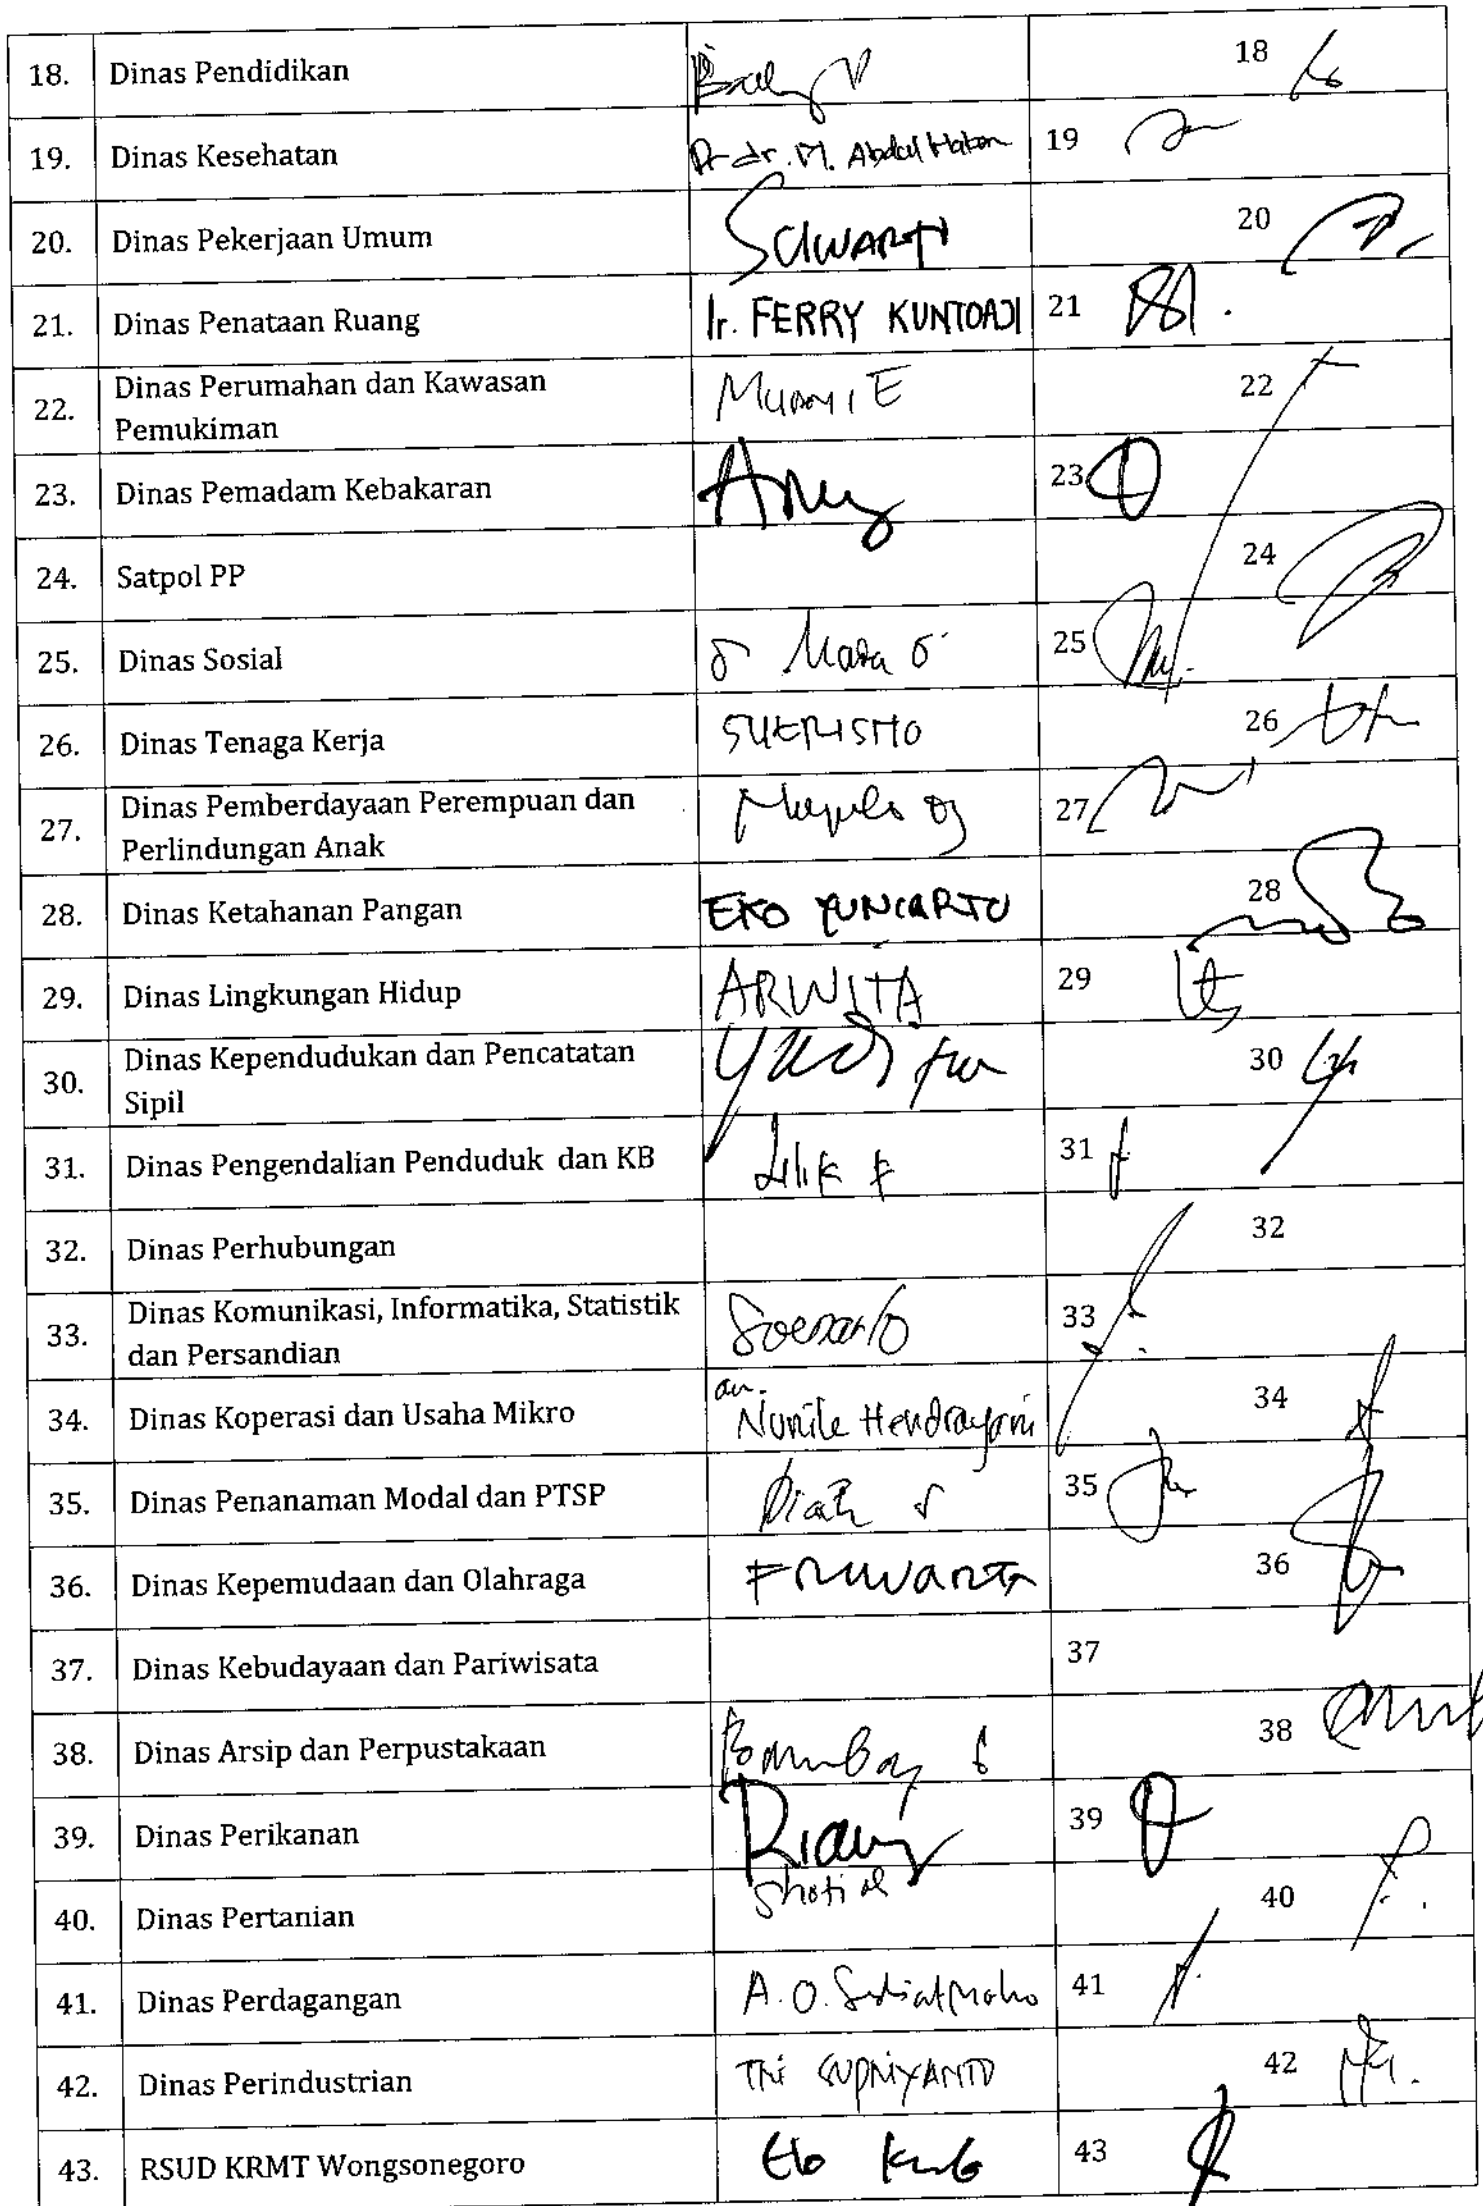 18. Dinas Pendidikan 18
19. Dinas Kesehatan Dr dr. M. Abdul Hakam 19
20. Dinas Pekerjaan Umum SUWARTO 20
21. Dinas Penataan Ruang Ir. FERRY KUNTOADJI 21
22. Dinas Perumahan dan Kawasan
Pemukiman 22
23. Dinas Pemadam Kebakaran 23
24. Satpol PP 24
25. Dinas Sosial 25
26. Dinas Tenaga Kerja 26
27. Dinas Pemberdayaan Perempuan dan
Perlindungan Anak 27
28. Dinas Ketahanan Pangan EKO YUNIARTO 28
29. Dinas Lingkungan Hidup ARWITA 29
30. Dinas Kependudukan dan Pencatatan
Sipil 30
31. Dinas Pengendalian Penduduk dan KB Lilik F 31
32. Dinas Perhubungan 32
33. Dinas Komunikasi, Informatika, Statistik
dan Persandian Soenarto 33
34. Dinas Koperasi dan Usaha Mikro an. Nunile Hendrayani 34
35. Dinas Penanaman Modal dan PTSP Diah 35
36. Dinas Kepemudaan dan Olahraga 36
37. Dinas Kebudayaan dan Pariwisata 37
38. Dinas Arsip dan Perpustakaan Bambang 38
39. Dinas Perikanan 39
40. Dinas Pertanian 40
41. Dinas Perdagangan A.O. 41
42. Dinas Perindustrian TRI SUPRIYANTO 42
43. RSUD KRMT Wongsonegoro 43